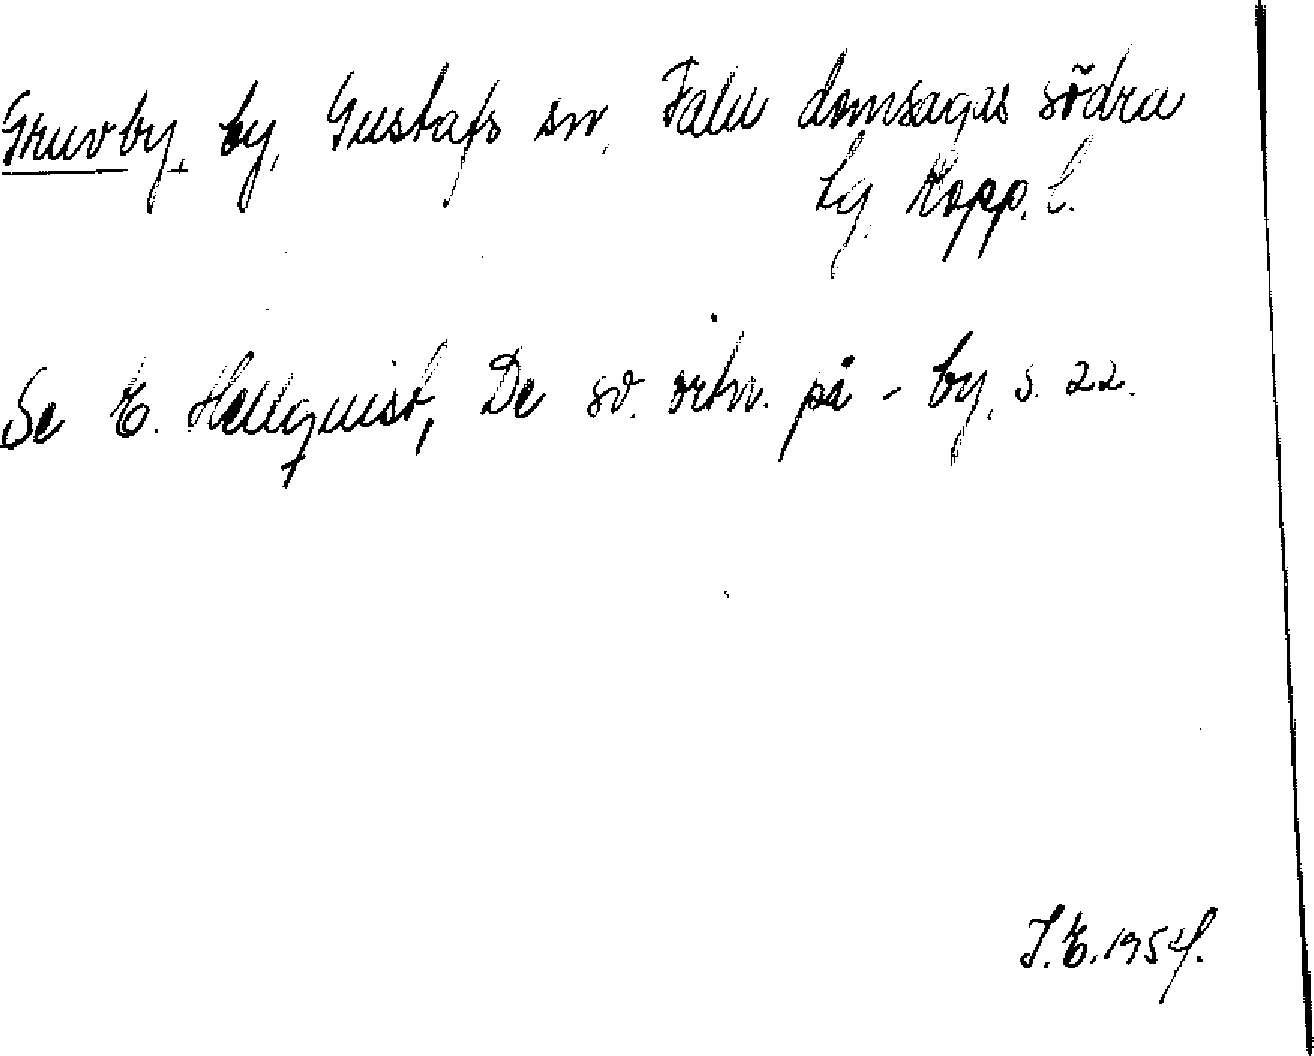 Gruvby, by, Gustafs sn, Falu domsagas södra
tg, Kopp. l.
Se E. Hellquist, De sv. ortn. på -by, s. 22.
J.E. 1954.